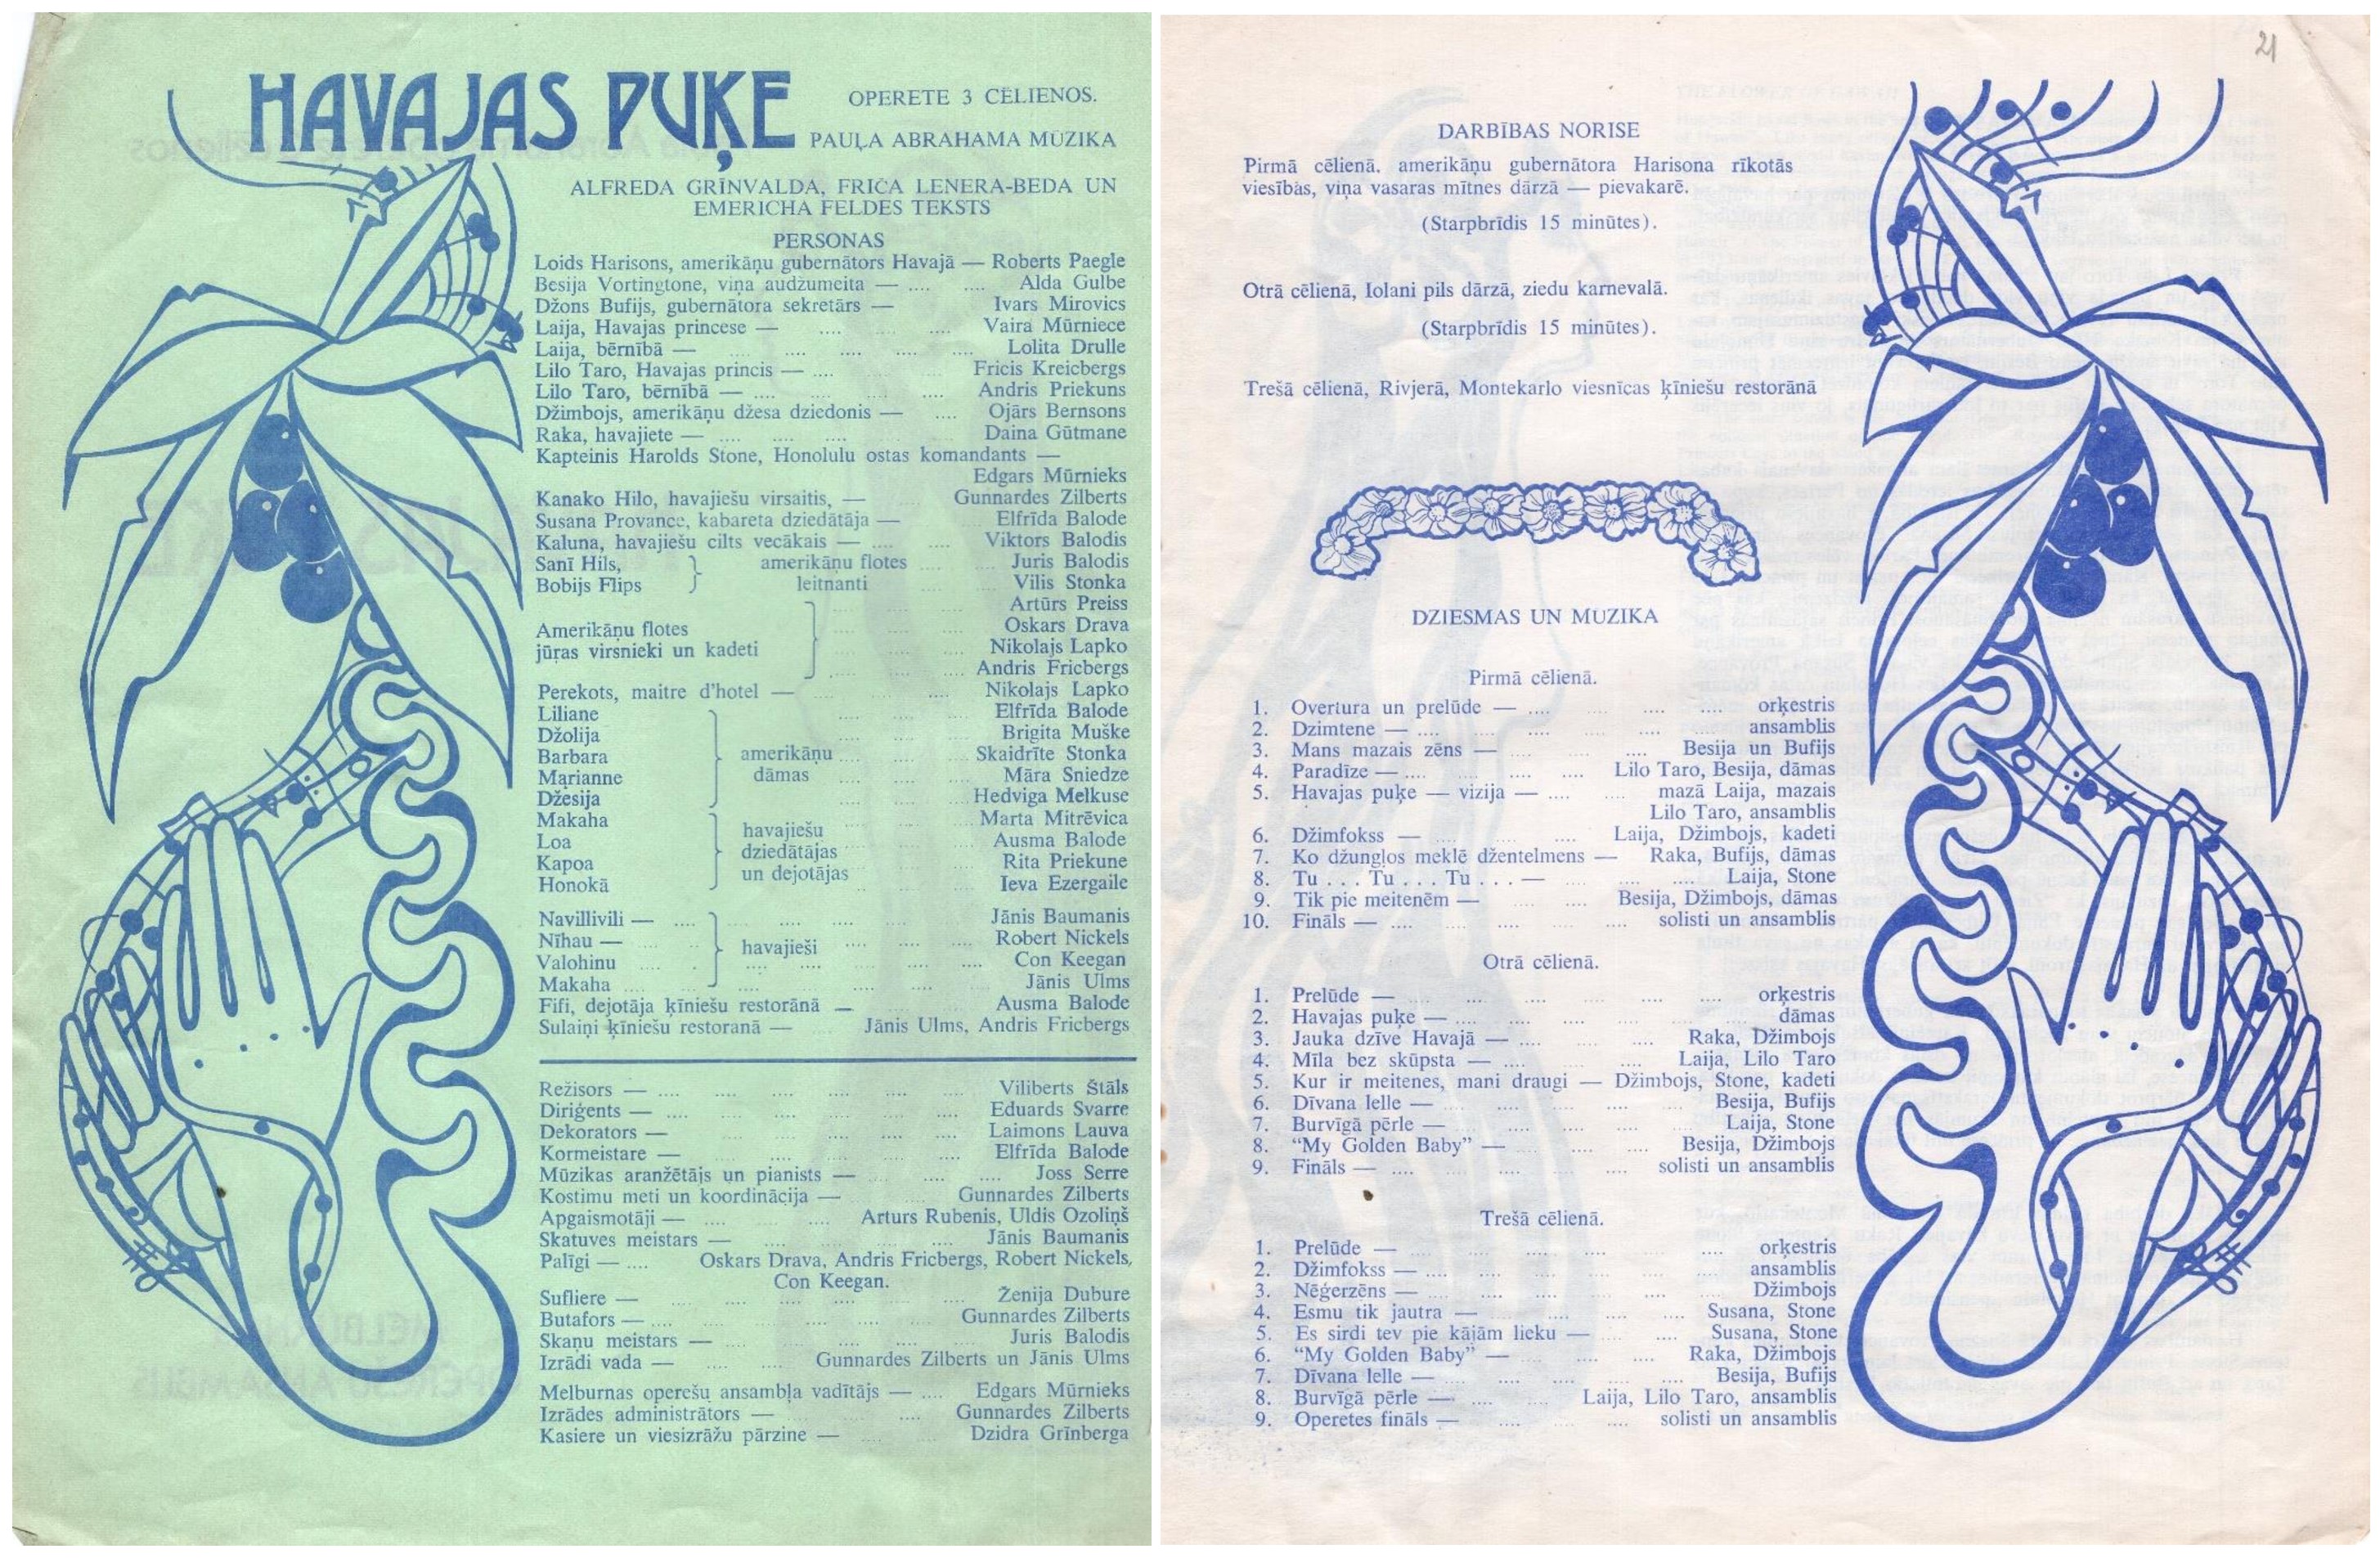 HAVAJAS PUĶE
OPERETE 3 CĒLIENOS.
PAUĻA ABRAHAMA MŪZIKA
ALFREDA GRĪNVALDA, FRIČA LENERA-BEDA UN
EMERICHA FELDES TEKSTS
PERSONAS
Loids Harisons, amerikāņu gubernātors Havajā — Roberts Paegle
Besija Vortingtone, viņa audžumeita — .... .... Alda Gulbe
Džons Bufijs, gubernātora sekretārs — Ivars Mirovics
Laija, Havajas princese — .... .... .... Vaira Mūrniece
Laija, bērnībā — .... .... .... .... .... Lolita Drulle
Lilo Taro, Havajas princis — .... Fricis Kreicbergs
Lilo Taro, bērnībā — .... .... .... .... Andris Priekuns
Džimbojs, amerikāņu džesa dziedonis — .... Ojārs Bernsons
Raka, havajiete — .... .... .... .... Daina Gūtmane
Kapteinis Harolds Stone, Honolulu ostas komandants —
Edgars Mūrnieks
Kanako Hilo, havajiešu virsaitis, — Gunnardes Zilberts
Susana Provance, kabareta dziedātāja — Elfrīda Balode
Kaluna, havajiešu cilts vecākais — .... .... Viktors Balodis
Sanī Hils, amerikāņu flotes .... .... Juris Balodis
Bobijs Flips leitnanti .... .... Vilis Stonka
Artūrs Preiss
Amerikāņu flotes Oskars Drava
jūras virsnieki un kadeti Nikolajs Lapko
Andris Fricbergs
Perekots, maitre d'hotel — .... Nikolajs Lapko
Liliane .... .... Elfrīda Balode
Džolija .... .... Brigita Muške
Barbara amerikāņu .... .... Skaidrīte Stonka
Marianne dāmas .... .... Māra Sniedze
Džesija .... .... Hedviga Melkuse
Makaha havajiešu .... Marta Mitrēvica
Loa dziedātājas Ausma Balode
Kapoa un dejotājas Rita Priekune
Honokā Ieva Ezergaile
Navillivili — .... .... .... .... Jānis Baumanis
Nīhau — havajieši .... .... .... Robert Nickels
Valohinu .... .... .... .... .... Con Keegan
Makaha .... .... .... .... .... Jānis Ulms
Fifi, dejotāja ķīniešu restorānā — Ausma Balode
Sulaiņi ķīniešu restoranā — Jānis Ulms, Andris Fricbergs
Režisors — .... .... .... .... .... Viliberts Štāls
Diriģents — .... .... .... .... .... Eduards Svarre
Dekorators — .... .... .... .... Laimons Lauva
Kormeistare — .... .... .... .... Elfrīda Balode
Mūzikas aranžētājs un pianists — .... .... .... Joss Serre
Kostimu meti un koordinācija — Gunnardes Zilberts
Apgaismotāji — .... .... .... Arturs Rubenis, Uldis Ozoliņš
Skatuves meistars — .... .... .... Jānis Baumanis
Palīgi — .... Oskars Drava, Andris Fricbergs, Robert Nickels,
Con Keegan.
Sufliere — .... .... .... .... .... Ženija Dubure
Butafors — .... .... .... .... Gunnardes Zilberts
Skaņu meistars — .... .... .... .... Juris Balodis
Izrādi vada — .... .... Gunnardes Zilberts un Jānis Ulms
Melburnas operešu ansambļa vadītājs — .... Edgars Mūrnieks
Izrādes administrātors — .... Gunnardes Zilberts
Kasiere un viesizrāžu pārzine — .... Dzidra Grīnberga
21
DARBĪBAS NORISE
Pirmā cēlienā. amerikāņu gubernātora Harisona rīkotās
viesībās, viņa vasaras mītnes dārzā — pievakarē.
(Starpbrīdis 15 minūtes).
Otrā cēlienā, Iolani pils dārzā, ziedu karnevalā.
(Starpbrīdis 15 minūtes).
Trešā cēlienā, Rivjerā, Montekarlo viesnīcas ķīniešu restorānā
DZIESMAS UN MŪZIKA
Pirmā cēlienā.
1. Overtura un prelūde — .... .... .... .... orķestris
2. Dzimtene — .... .... .... .... .... ansamblis
3. Mans mazais zēns — .... .... Besija un Bufijs
4. Paradīze — .... .... .... .... Lilo Taro, Besija, dāmas
5. Havajas puķe — vizija — .... .... mazā Laija, mazais
Lilo Taro, ansamblis
6. Džimfokss — .... .... .... Laija, Džimbojs, kadeti
7. Ko džungļos meklē džentelmens — Raka, Bufijs, dāmas
8. Tu . . . Tu . . . Tu . . . — .... .... .... Laija, Stone
9. Tik pie meitenēm — .... .... Besija, Džimbojs, dāmas
10. Fināls — .... .... .... .... solisti un ansamblis
Otrā cēlienā.
1. Prelūde — .... .... .... .... .... .... orķestris
2. Havajas puķe — .... .... .... .... .... dāmas
3. Jauka dzīve Havajā — .... .... .... Raka, Džimbojs
4. Mīla bez skūpsta — .... .... .... Laija, Lilo Taro
5. Kur ir meitenes, mani draugi — Džimbojs, Stone, kadeti
6. Dīvana lelle — .... .... .... .... Besija, Bufijs
7. Burvīgā pērle — .... .... .... .... Laija, Stone
8. "My Golden Baby" — .... .... .... Besija, Džimbojs
9. Fināls — .... .... .... .... solisti un ansamblis
Trešā cēlienā.
1. Prelūde — .... .... .... .... .... .... orķestris
2. Džimfokss — .... .... .... .... .... ansamblis
3. Nēģerzēns — .... .... .... .... .... Džimbojs
4. Esmu tik jautra — .... .... .... Susana, Stone
5. Es sirdi tev pie kājām lieku — .... .... Susana, Stone
6. "My Golden Baby" — .... .... .... Raka, Džimbojs
7. Dīvana lelle — .... .... .... .... Besija, Bufijs
8. Burvīgā pērle — .... .... Laija, Lilo Taro, ansamblis
9. Operetes fināls — .... .... solisti un ansamblis